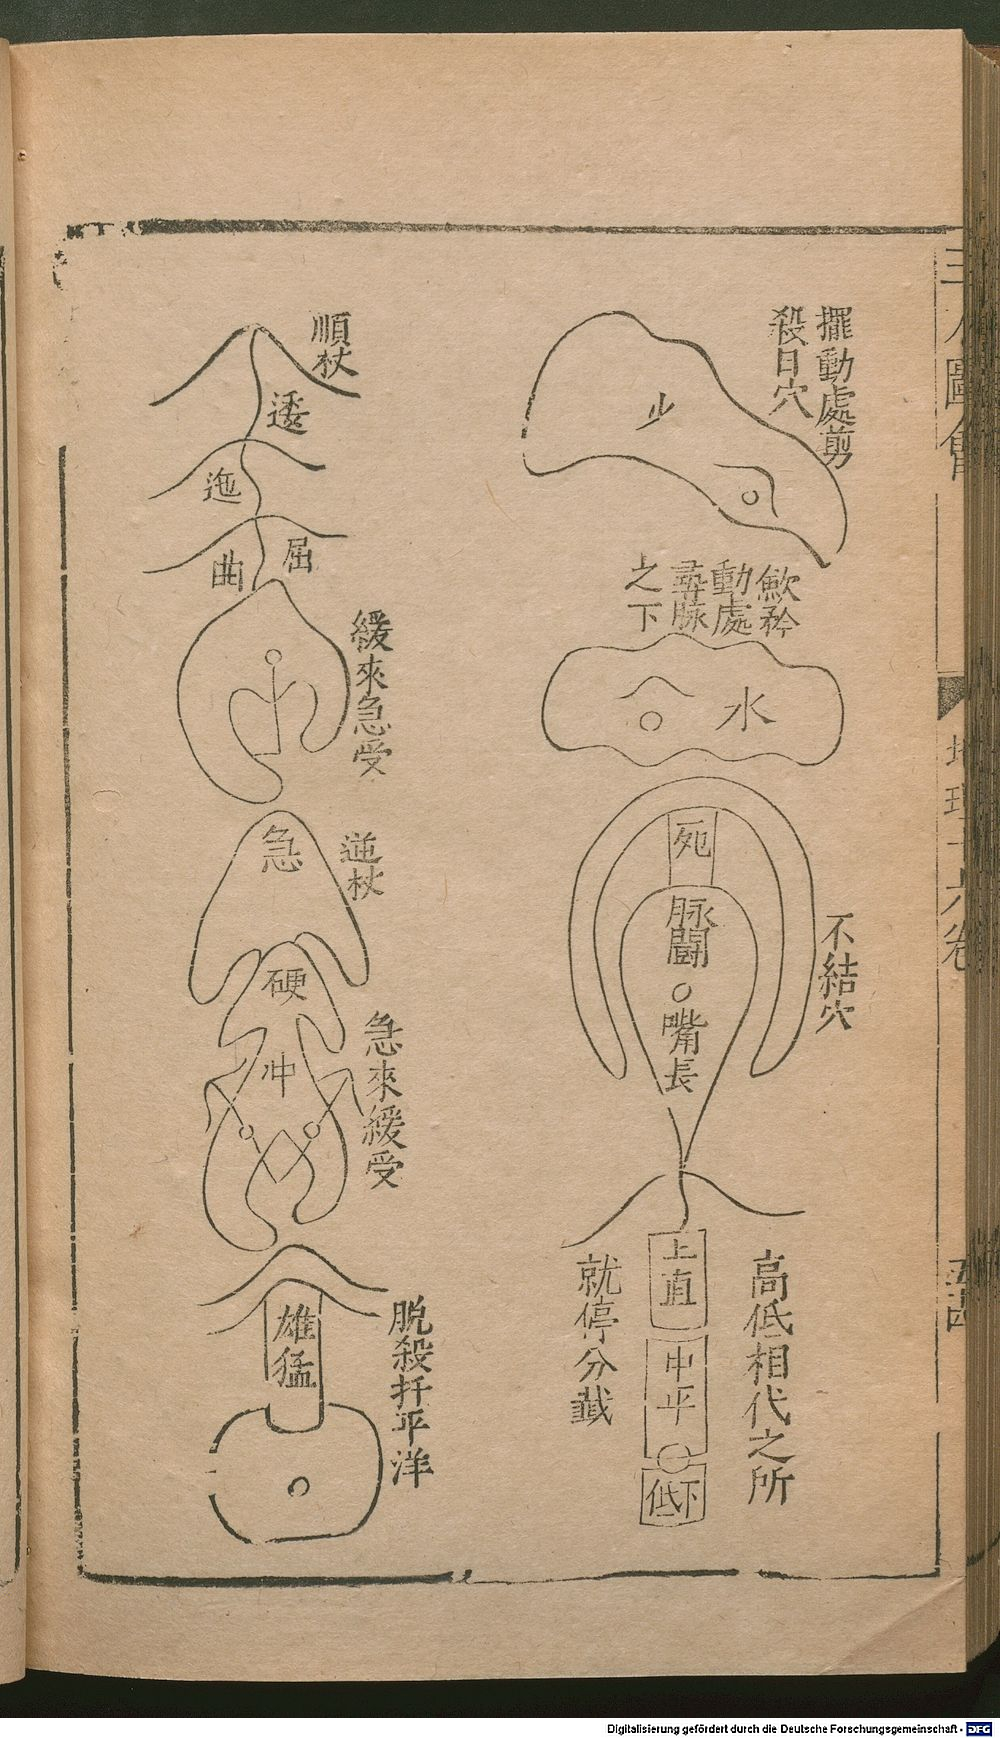 三才圖會
地理十六卷
擺動處剪
殺日穴
少
歛矜
動處
尋脉
之下
水
不結穴
死
脉鬪
嘴長
高低相代之所
上直
中平
低下
就停分截
順杖
逶
迤
屈
曲
緩來急受
逆杖
急
硬
冲
急來緩受
雄猛
脫殺扦平洋
Digitalisierung gefördert durch die Deutsche Forschungsgemeinschaft - DFG